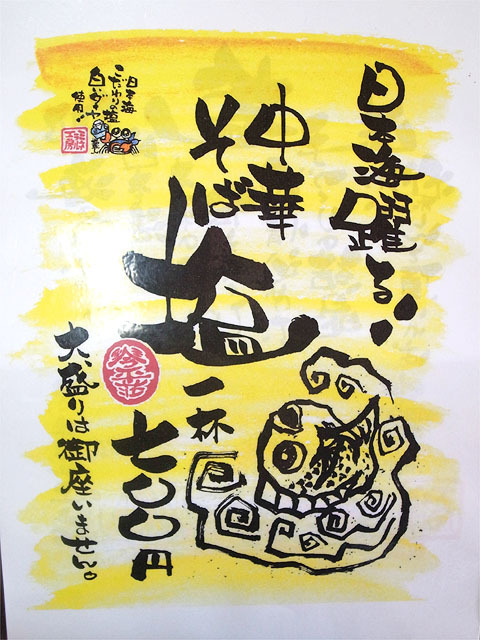 日本海躍る!
中華
そば
塩
一杯
七〇〇円
大盛りは御座いません。
日本海
こだわりの塩
白いダイヤ
使用!